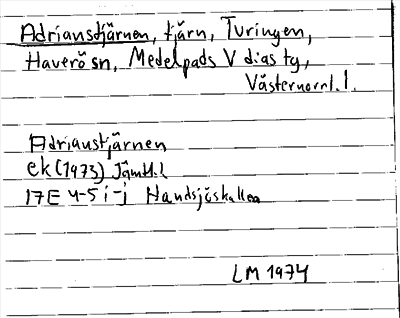 Adrianstjärnen, tjärn, Turingen,
Haverö sn, Medelpads V djas tg,
Västernorrl. l.
Adrianstjärnen
ek (1973) Jämtl. l
17E 4-5 i-j Handsjöskallen
LM 1974